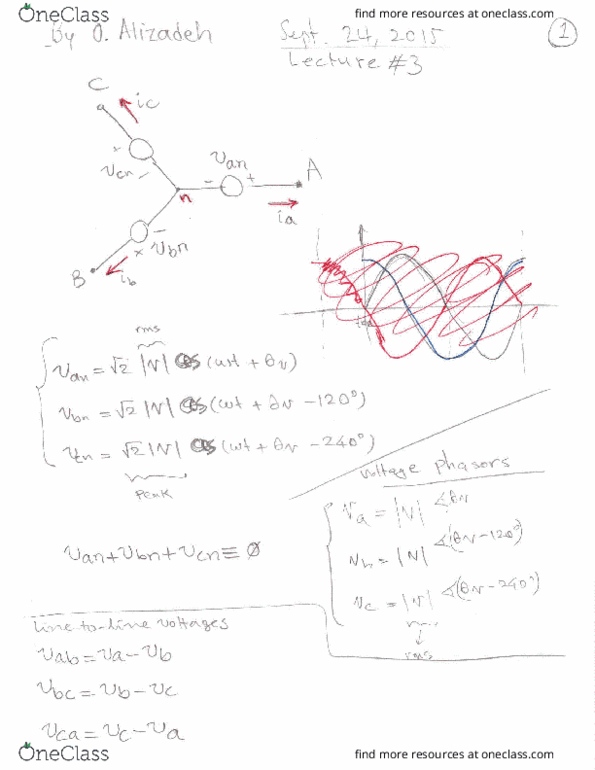 OneClass
find more resources at oneclass.com
By O. Alizadeh
Sept. 24, 2015
1
Lecture #3
C
a
ic
+
vcn
−
van
− +
A
n
ia
−
vbn
+
B
ib
rms
van = √2 |V| cos (ωt + θv)
vbn = √2 |V| cos (ωt + θv − 120°)
vcn = √2 |V| cos (ωt + θv − 240°)
Peak
voltage phasors
Va = |V| ∡θv
Vb = |V| ∡(θv − 120°)
Vc = |V| ∡(θv − 240°)
rms
van + vbn + vcn ≡ 0
Line to-line voltages
vab = va − vb
vbc = vb − vc
vca = vc − va
OneClass
find more resources at oneclass.com